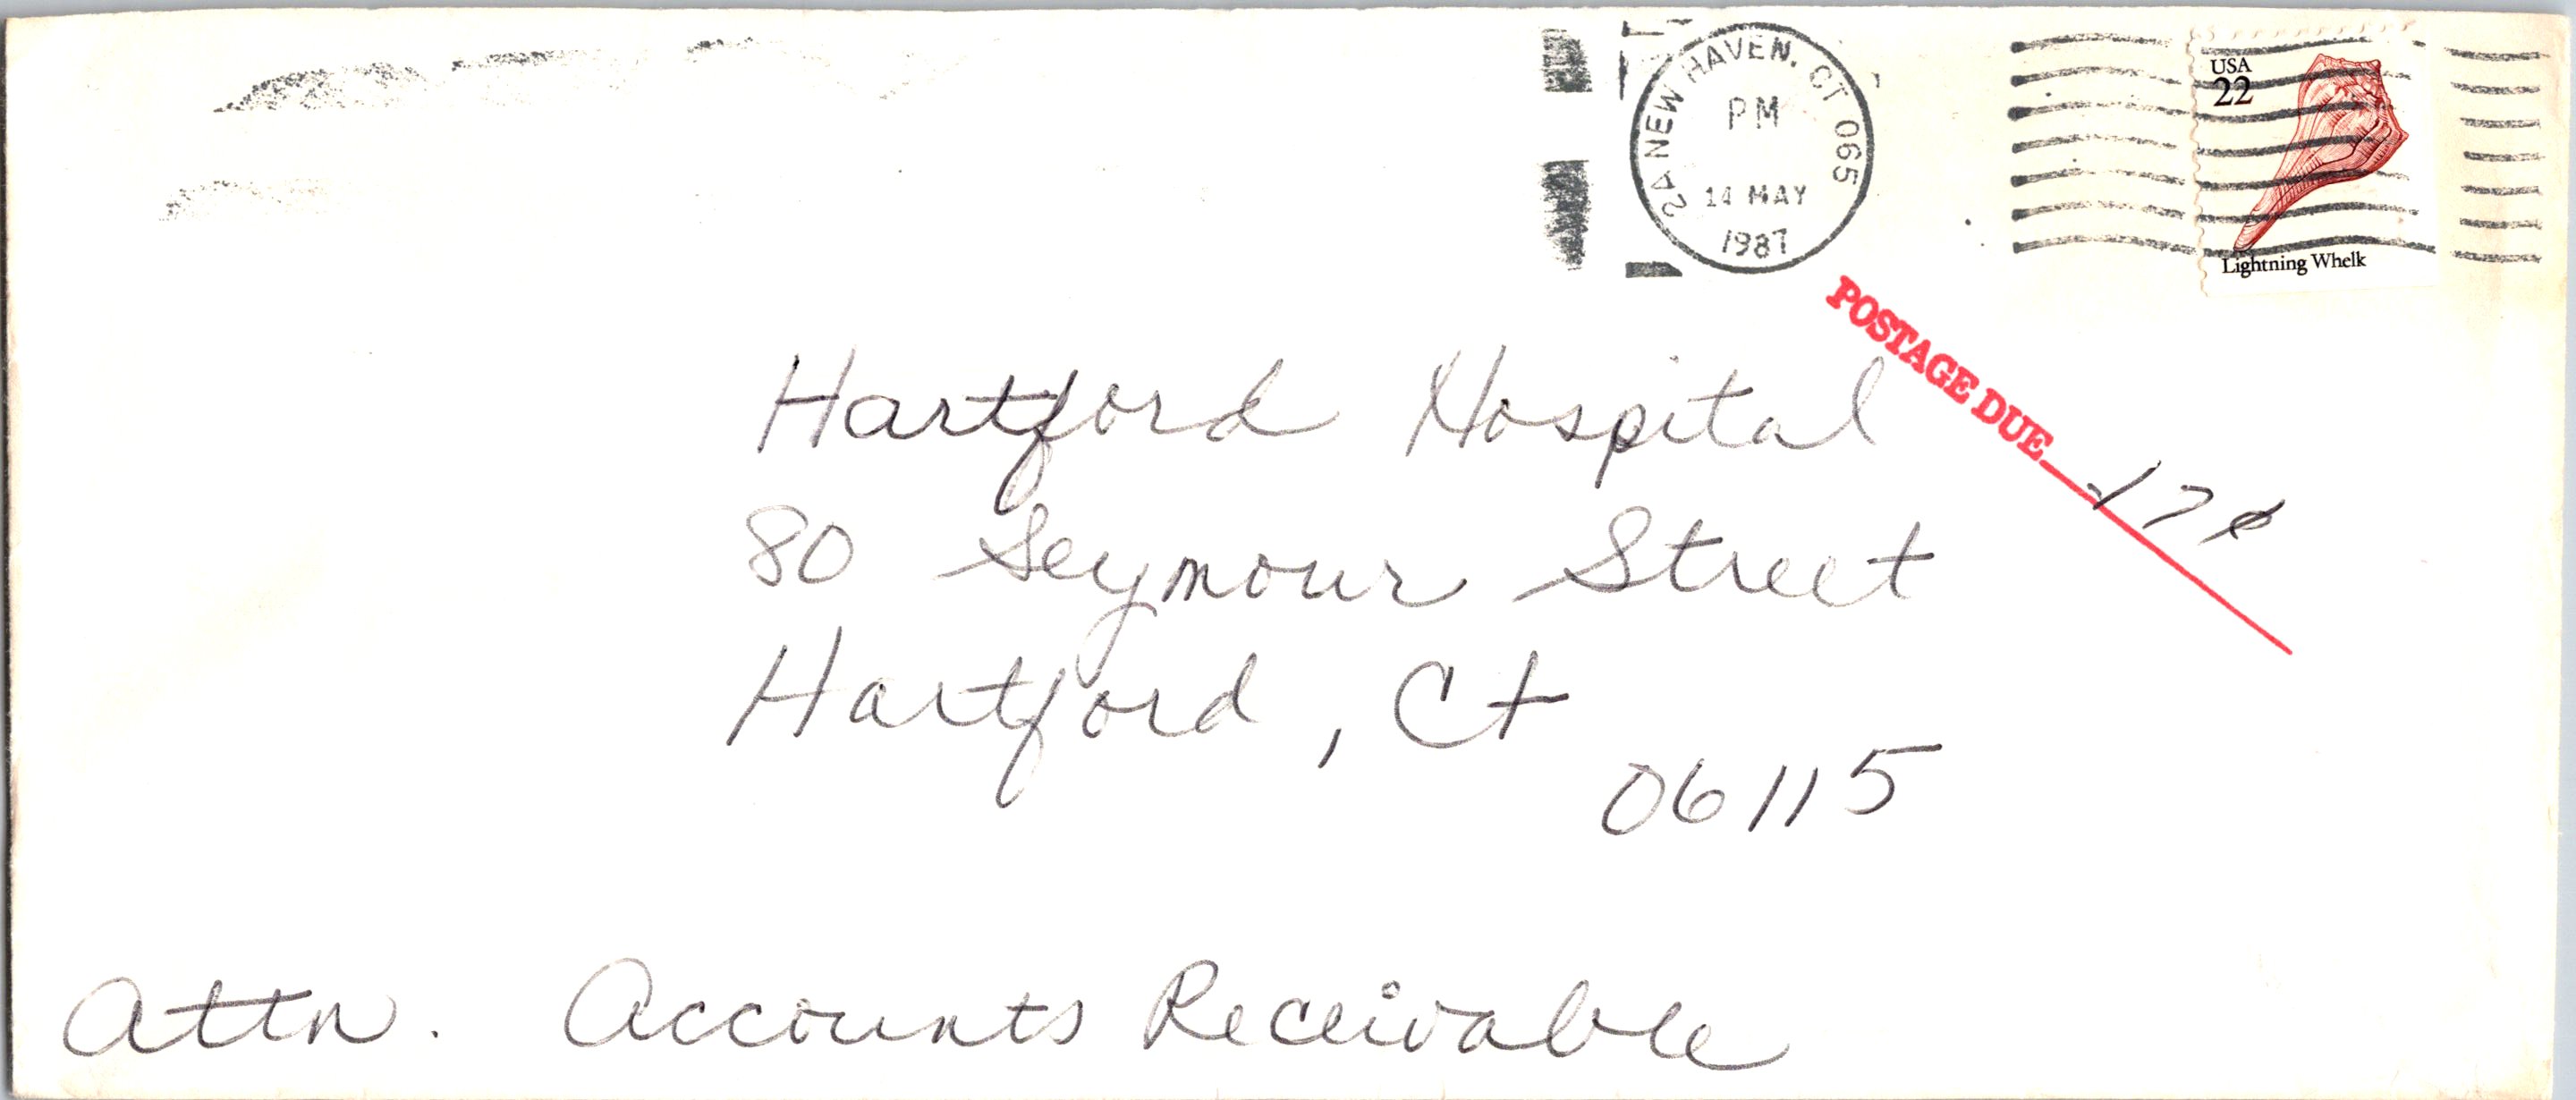 SA NEW HAVEN, CT 065
PM
14 MAY
1987
USA
22
Lightning Whelk
POSTAGE DUE 17¢
Hartford Hospital
80 Seymour Street
Hartford, Ct
06115
Attn. Accounts Receivable